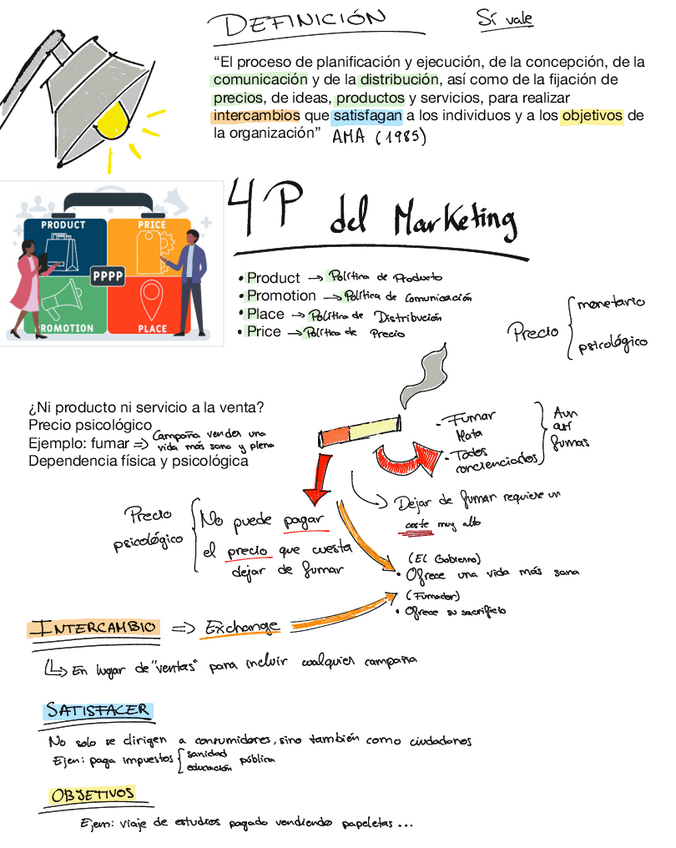 DEFINICIÓN
Sí vale
“El proceso de planificación y ejecución, de la concepción, de la
comunicación y de la distribución, así como de la fijación de
precios, de ideas, productos y servicios, para realizar
intercambios que satisfagan a los individuos y a los objetivos de
la organización” AMA (1985)
4P del Marketing
PRODUCT
PRICE
PPPP
PROMOTION
PLACE
• Product → Política de Producto
• Promotion → Política de Comunicación
• Place → Política de Distribución
• Price → Política de Precio
Precio { monetario
psicológico
¿Ni producto ni servicio a la venta?
Precio psicológico
Ejemplo: fumar => Campaña vender una
vida más sana y plena
Dependencia física y psicológica
- Fumar
Mata
- Todos
concienciados
} Aun
así
fumas
Dejar de fumar requiere un
coste muy alto
Precio
psicológico
{ No puede pagar
el precio que cuesta
dejar de fumar
(El Gobierno)
• Ofrece una vida más sana
(Fumador)
• Ofrece su sacrificio
INTERCAMBIO => Exchange
↳ En lugar de "ventas" para incluir cualquier campaña
SATISFACER
No solo se dirigen a consumidores, sino también como ciudadanos
Ejem: paga impuestos { sanidad
educación pública
OBJETIVOS
Ejem: viaje de estudios pagado vendiendo papeletas ...